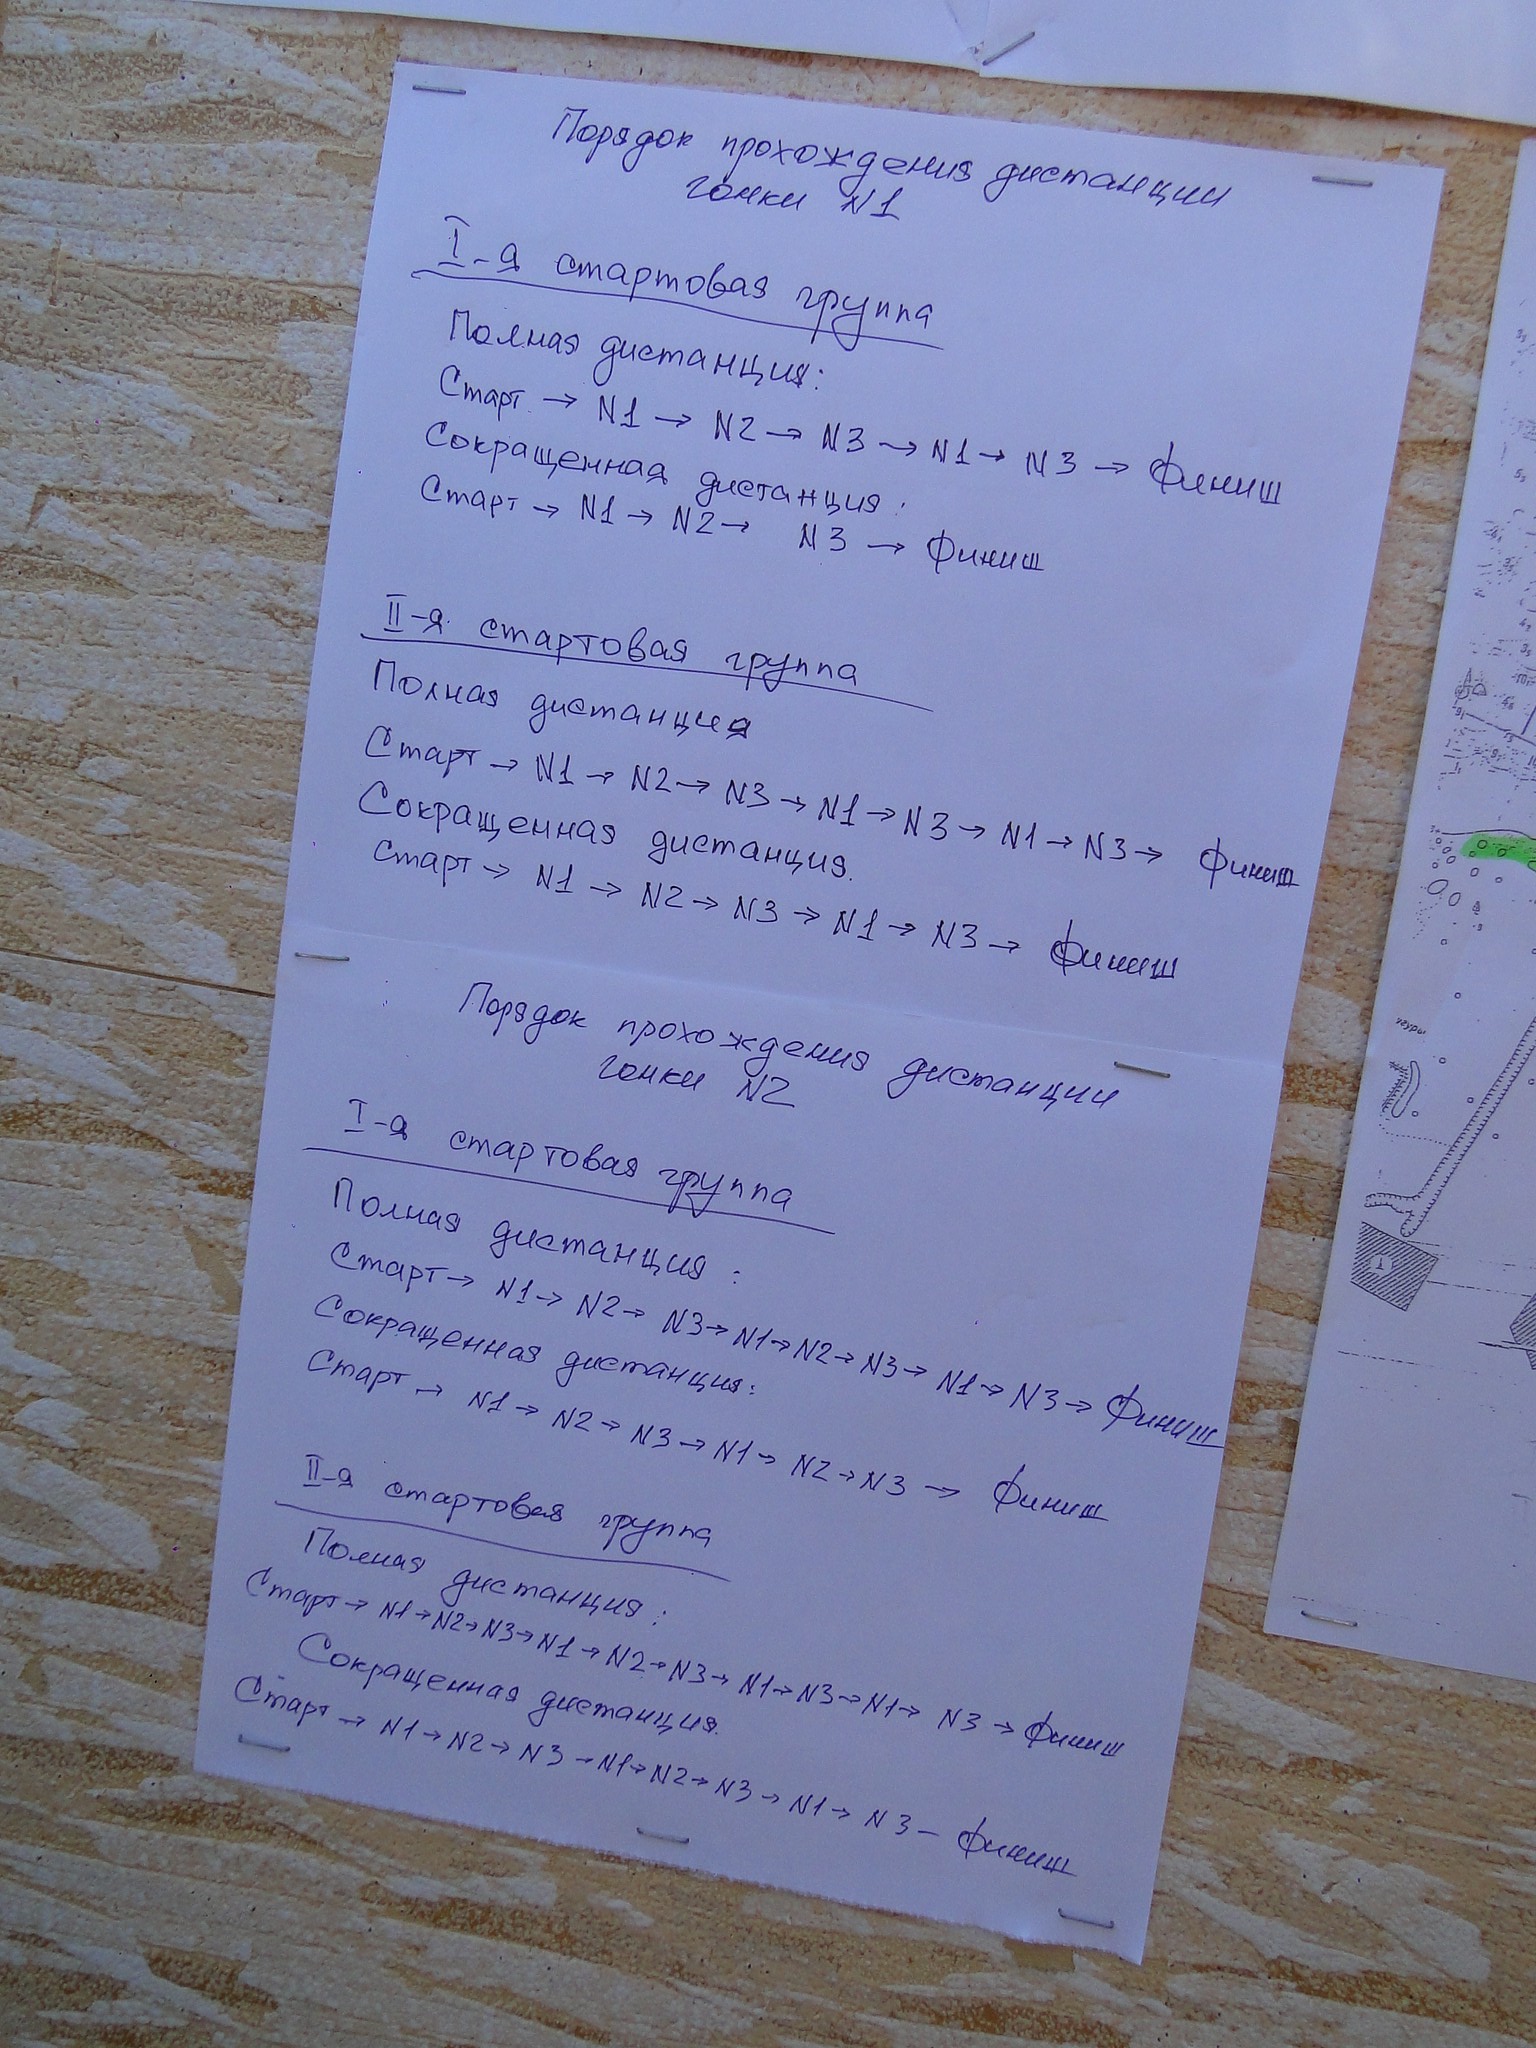 Порядок прохождения дистанции
гонки N1
I-я стартовая группа
Полная дистанция:
Старт → N1 → N2 → N3 → N1 → N3 → Финиш
Сокращенная дистанция:
Старт → N1 → N2 → N3 → Финиш
II-я стартовая группа
Полная дистанция
Старт → N1 → N2 → N3 → N1 → N3 → N1 → N3 → Финиш
Сокращенная дистанция.
Старт → N1 → N2 → N3 → N1 → N3 → Финиш
Порядок прохождения дистанции
гонки N2
I-я стартовая группа
Полная дистанция:
Старт → N1 → N2 → N3 → N1 → N2 → N3 → N1 → N3 → Финиш
Сокращенная дистанция:
Старт → N1 → N2 → N3 → N1 → N2 → N3 → Финиш
II-я стартовая группа
Полная дистанция:
Старт → N1 → N2 → N3 → N1 → N2 → N3 → N1 → N3 → N1 → N3 → Финиш
Сокращенная дистанция.
Старт → N1 → N2 → N3 → N1 → N2 → N3 → N1 → N3 – Финиш
1